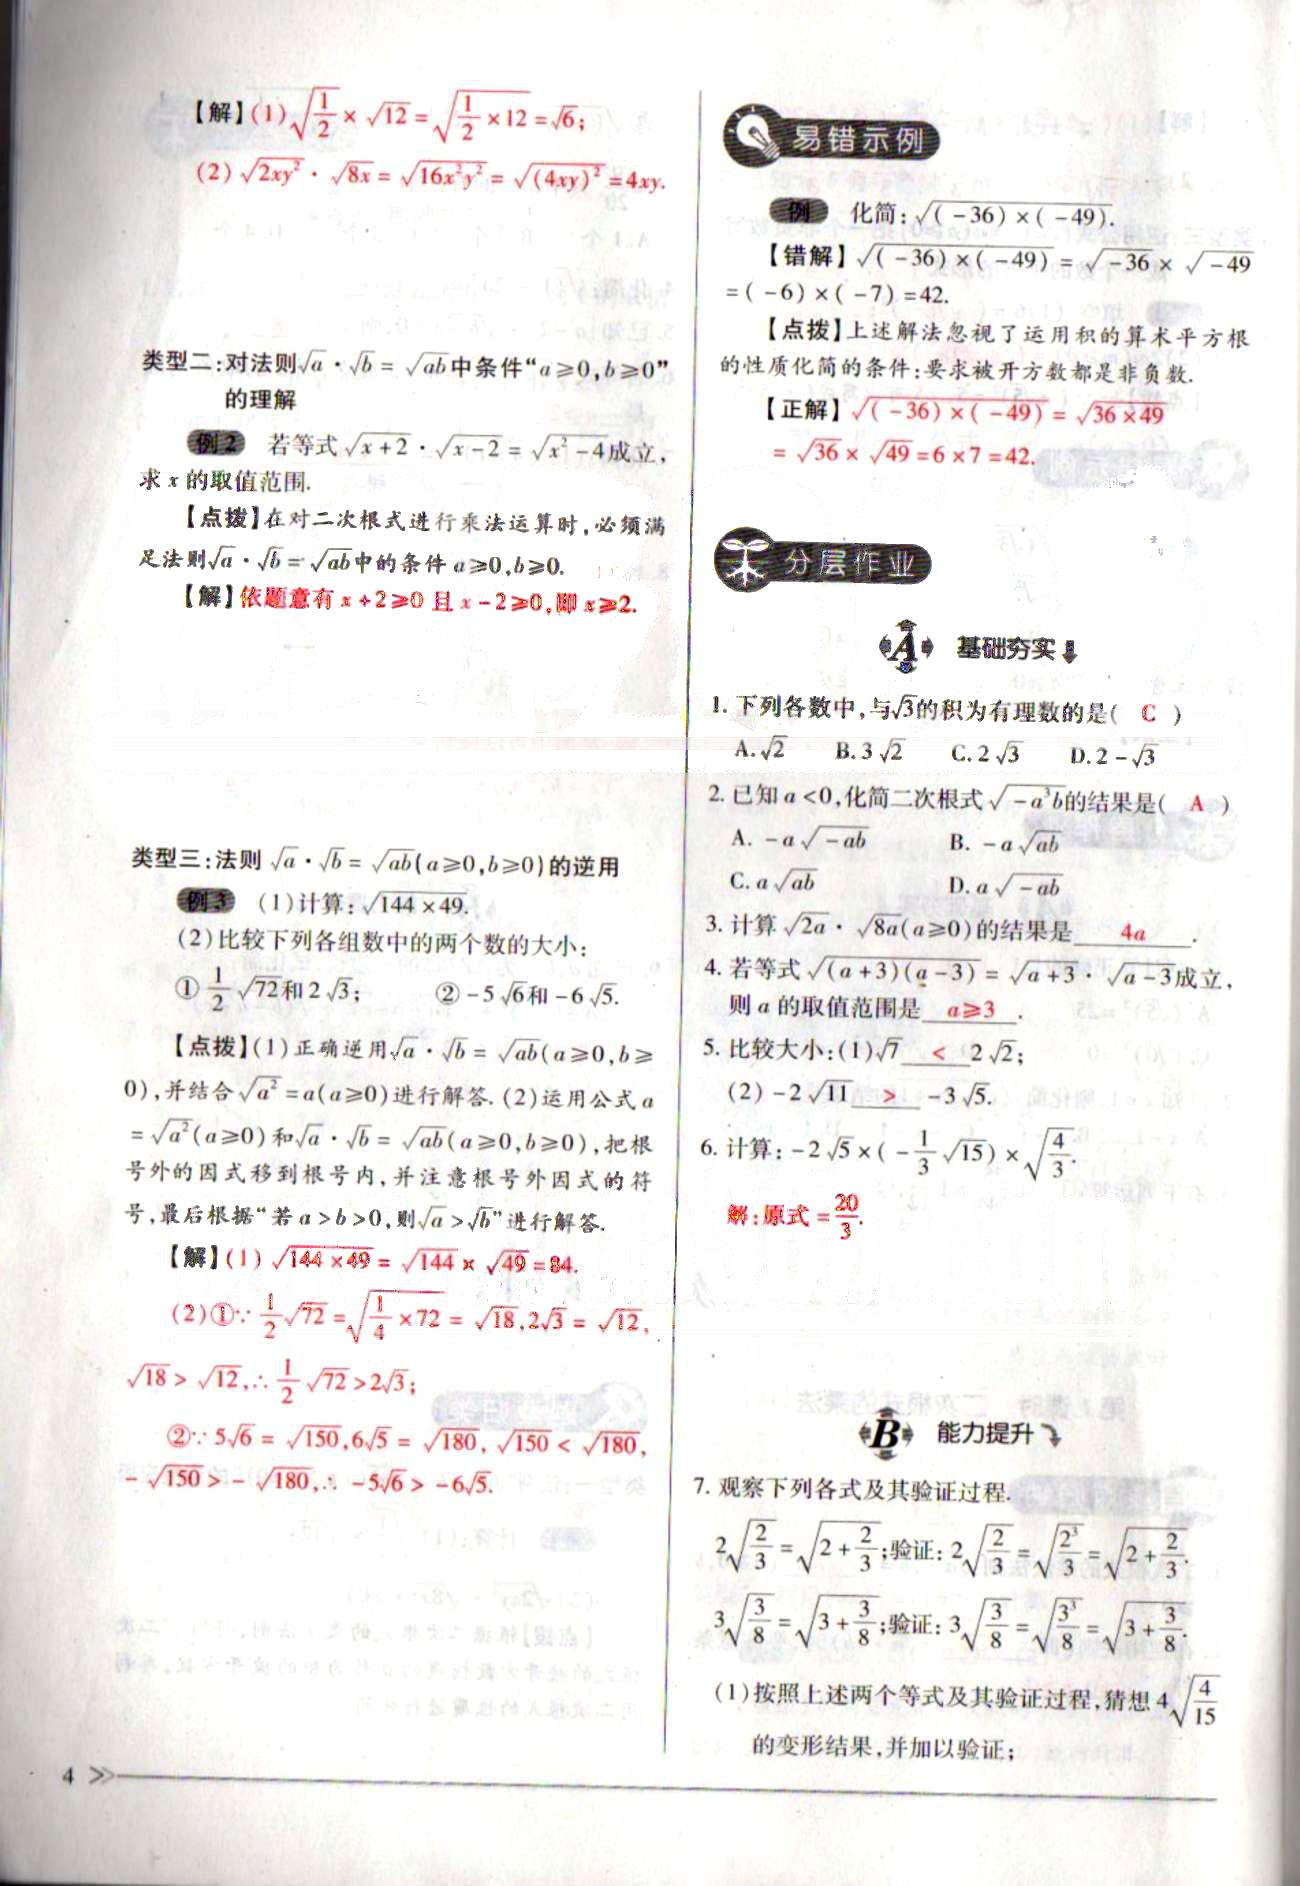 【解】(1)√(1/2)×√12=√(1/2×12)=√6;
(2)√(2xy²)·√(8x)=√(16x²y²)=√((4xy)²)=4xy.
类型二:对法则√a·√b=√(ab)中条件“a≥0,b≥0”
的理解
例2 若等式√(x+2)·√(x-2)=√(x²-4)成立,
求x的取值范围.
【点拨】在对二次根式进行乘法运算时,必须满
足法则√a·√b=√(ab)中的条件a≥0,b≥0.
【解】依题意有x+2≥0且x-2≥0,即x≥2.
类型三:法则√a·√b=√(ab)(a≥0,b≥0)的逆用
例3 (1)计算:√(144×49).
(2)比较下列各组数中的两个数的大小:
①1/2√72和2√3; ②-5√6和-6√5.
【点拨】(1)正确逆用√a·√b=√(ab)(a≥0,b≥
0),并结合√(a²)=a(a≥0)进行解答.(2)运用公式a
=√(a²)(a≥0)和√a·√b=√(ab)(a≥0,b≥0),把根
号外的因式移到根号内,并注意根号外因式的符
号,最后根据“若a>b>0,则√a>√b”进行解答.
【解】(1)√(144×49)=√144×√49=84.
(2)①∵1/2√72=√(1/4×72)=√18,2√3=√12,
√18>√12,∴1/2√72>2√3;
②∵5√6=√150,6√5=√180,√150<√180,
-√150>-√180,∴-5√6>-6√5.
4
易错示例
例 化简:√((-36)×(-49)).
【错解】√((-36)×(-49))=√(-36)×√(-49)
=(-6)×(-7)=42.
【点拨】上述解法忽视了运用积的算术平方根
的性质化简的条件:要求被开方数都是非负数.
【正解】√((-36)×(-49))=√(36×49)
=√36×√49=6×7=42.
分层作业
A 基础夯实
1.下列各数中,与√3的积为有理数的是( C )
A.√2 B.3√2 C.2√3 D.2-√3
2.已知a<0,化简二次根式√(-a³b)的结果是( A )
A.-a√(-ab) B.-a√(ab)
C.a√(ab) D.a√(-ab)
3.计算√(2a)·√(8a)(a≥0)的结果是 4a .
4.若等式√((a+3)(a-3))=√(a+3)·√(a-3)成立,
则a的取值范围是 a≥3 .
5.比较大小:(1)√7 < 2√2;
(2)-2√11 > -3√5.
6.计算:-2√5×(-1/3√15)×√(4/3).
解:原式=20/3.
B 能力提升
7.观察下列各式及其验证过程.
2√(2/3)=√(2+2/3);验证:2√(2/3)=√(2³/3)=√(2+2/3).
3√(3/8)=√(3+3/8);验证:3√(3/8)=√(3³/8)=√(3+3/8).
(1)按照上述两个等式及其验证过程,猜想4√(4/15)
的变形结果,并加以验证;